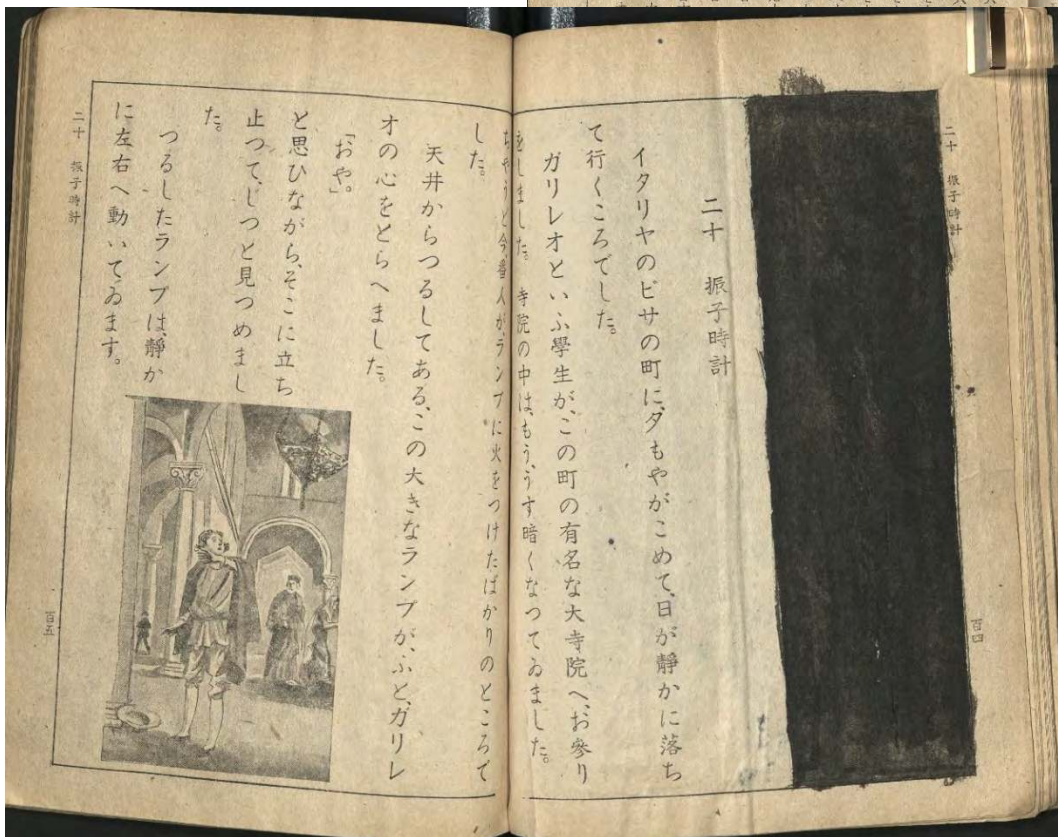 二十 振子時計
百四
二十 振子時計
イタリヤのピサの町に、夕もやがこめて、日が靜かに落ち
て行くころでした。
ガリレオといふ學生が、この町の有名な大寺院へ、お參り
をしました。寺院の中は、もう、うす暗くなつてゐました。
ちやうど今、番人が、ランプに火をつけたばかりのところで
した。
天井からつるしてある、この大きなランプが、ふと、ガリレ
オの心をとらへました。
「おや。」
と思ひながら、そこに立ち
止つて、じつと見つめまし
た。
つるしたランプは、靜か
に左右へ動いてゐます。
二十 振子時計
百五